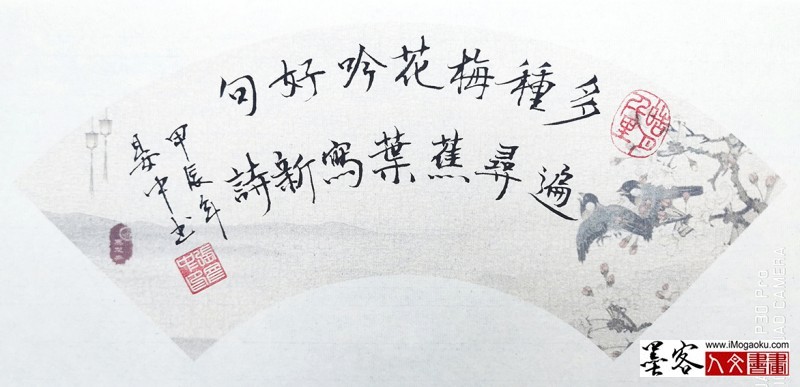 多種梅花吟好句
遍尋蕉葉寫新詩
甲辰年
晏中书
P30 Pro
AO CAMERA
墨客
人文書畫
www.iMogaoku.com